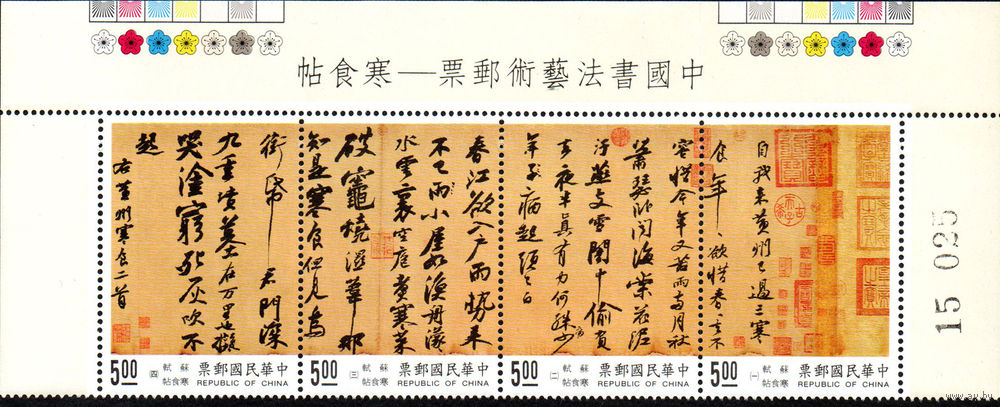 中國書法藝術郵票—寒食帖
自我來黃州已過三寒
食年〻欲惜春〻去不
容惜今年又苦雨兩月秋
蕭瑟卧聞海棠花泥
汙燕支雪闇中偷負
去夜半真有力何殊少
年子病起頭已白
春江欲入戶雨勢來
不已雨小屋如漁舟濛〻
水雲裏空庖煮寒菜
破竈燒濕葦那
知是寒食但見烏
銜帋君門深
九重墳墓在万里也擬
哭塗窮死灰吹不
起
右黃州寒食二首
中華民國郵票
REPUBLIC OF CHINA
蘇軾寒食帖(一)
5.00
中華民國郵票
REPUBLIC OF CHINA
蘇軾寒食帖(二)
5.00
中華民國郵票
REPUBLIC OF CHINA
蘇軾寒食帖(三)
5.00
中華民國郵票
REPUBLIC OF CHINA
蘇軾寒食帖(四)
5.00
15 025
www.ay.by